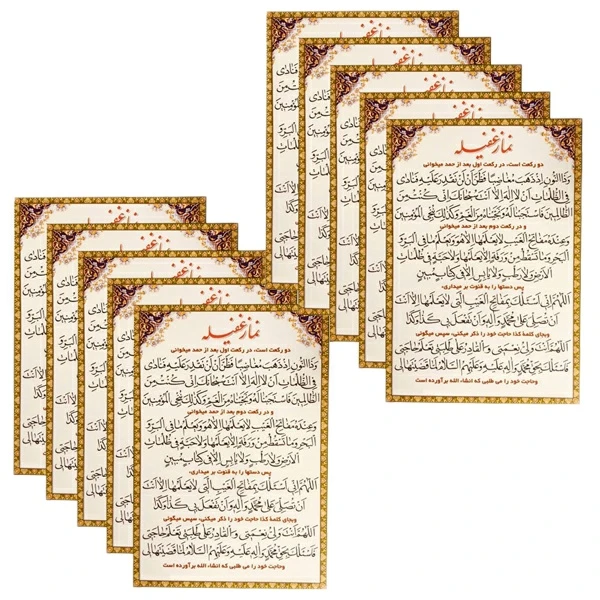 نماز غفیله
دو رکعت است، در رکعت اول بعد از حمد میخوانی
وَذَا النُّونِ إِذْ ذَهَبَ مُغَاضِبًا فَظَنَّ أَنْ لَنْ نَقْدِرَ عَلَيْهِ فَنَادَى
فِي الظُّلُمَاتِ أَنْ لَا إِلَهَ إِلَّا أَنْتَ سُبْحَانَكَ إِنِّي كُنْتُ مِنَ
الظَّالِمِينَ فَاسْتَجَبْنَا لَهُ وَنَجَّيْنَاهُ مِنَ الْغَمِّ وَكَذَلِكَ نُنْجِي الْمُؤْمِنِينَ
و در رکعت دوم بعد از حمد میخوانی
وَعِنْدَهُ مَفَاتِحُ الْغَيْبِ لَا يَعْلَمُهَا إِلَّا هُوَ وَيَعْلَمُ مَا فِي الْبَرِّ وَ
الْبَحْرِ وَمَا تَسْقُطُ مِنْ وَرَقَةٍ إِلَّا يَعْلَمُهَا وَلَا حَبَّةٍ فِي ظُلُمَاتِ
الْأَرْضِ وَلَا رَطْبٍ وَلَا يَابِسٍ إِلَّا فِي كِتَابٍ مُبِينٍ
پس دستها را به قنوت بر میداری،
اَللّٰهُمَّ إِنِّي أَسْئَلُكَ بِمَفَاتِحِ الْغَيْبِ الَّتِي لَا يَعْلَمُهَا إِلَّا أَنْتَ
أَنْ تُصَلِّيَ عَلَى مُحَمَّدٍ وَآلِهِ وَأَنْ تَفْعَلَ بِي كَذَا وَكَذَا
وبجای کلمهٔ کذا حاجت خود را ذکر میکنی، سپس میگوئی
اَللّٰهُمَّ أَنْتَ وَلِيُّ نِعْمَتِي وَالْقَادِرُ عَلَى طَلِبَتِي تَعْلَمُ حَاجَتِي
فَأَسْئَلُكَ بِحَقِّ مُحَمَّدٍ وَآلِهِ عَلَيْهِ وَعَلَيْهِمُ السَّلَامُ لَمَّا قَضَيْتَهَا لِي
وحاجت خود را می طلبی که انشاء الله برآورده است